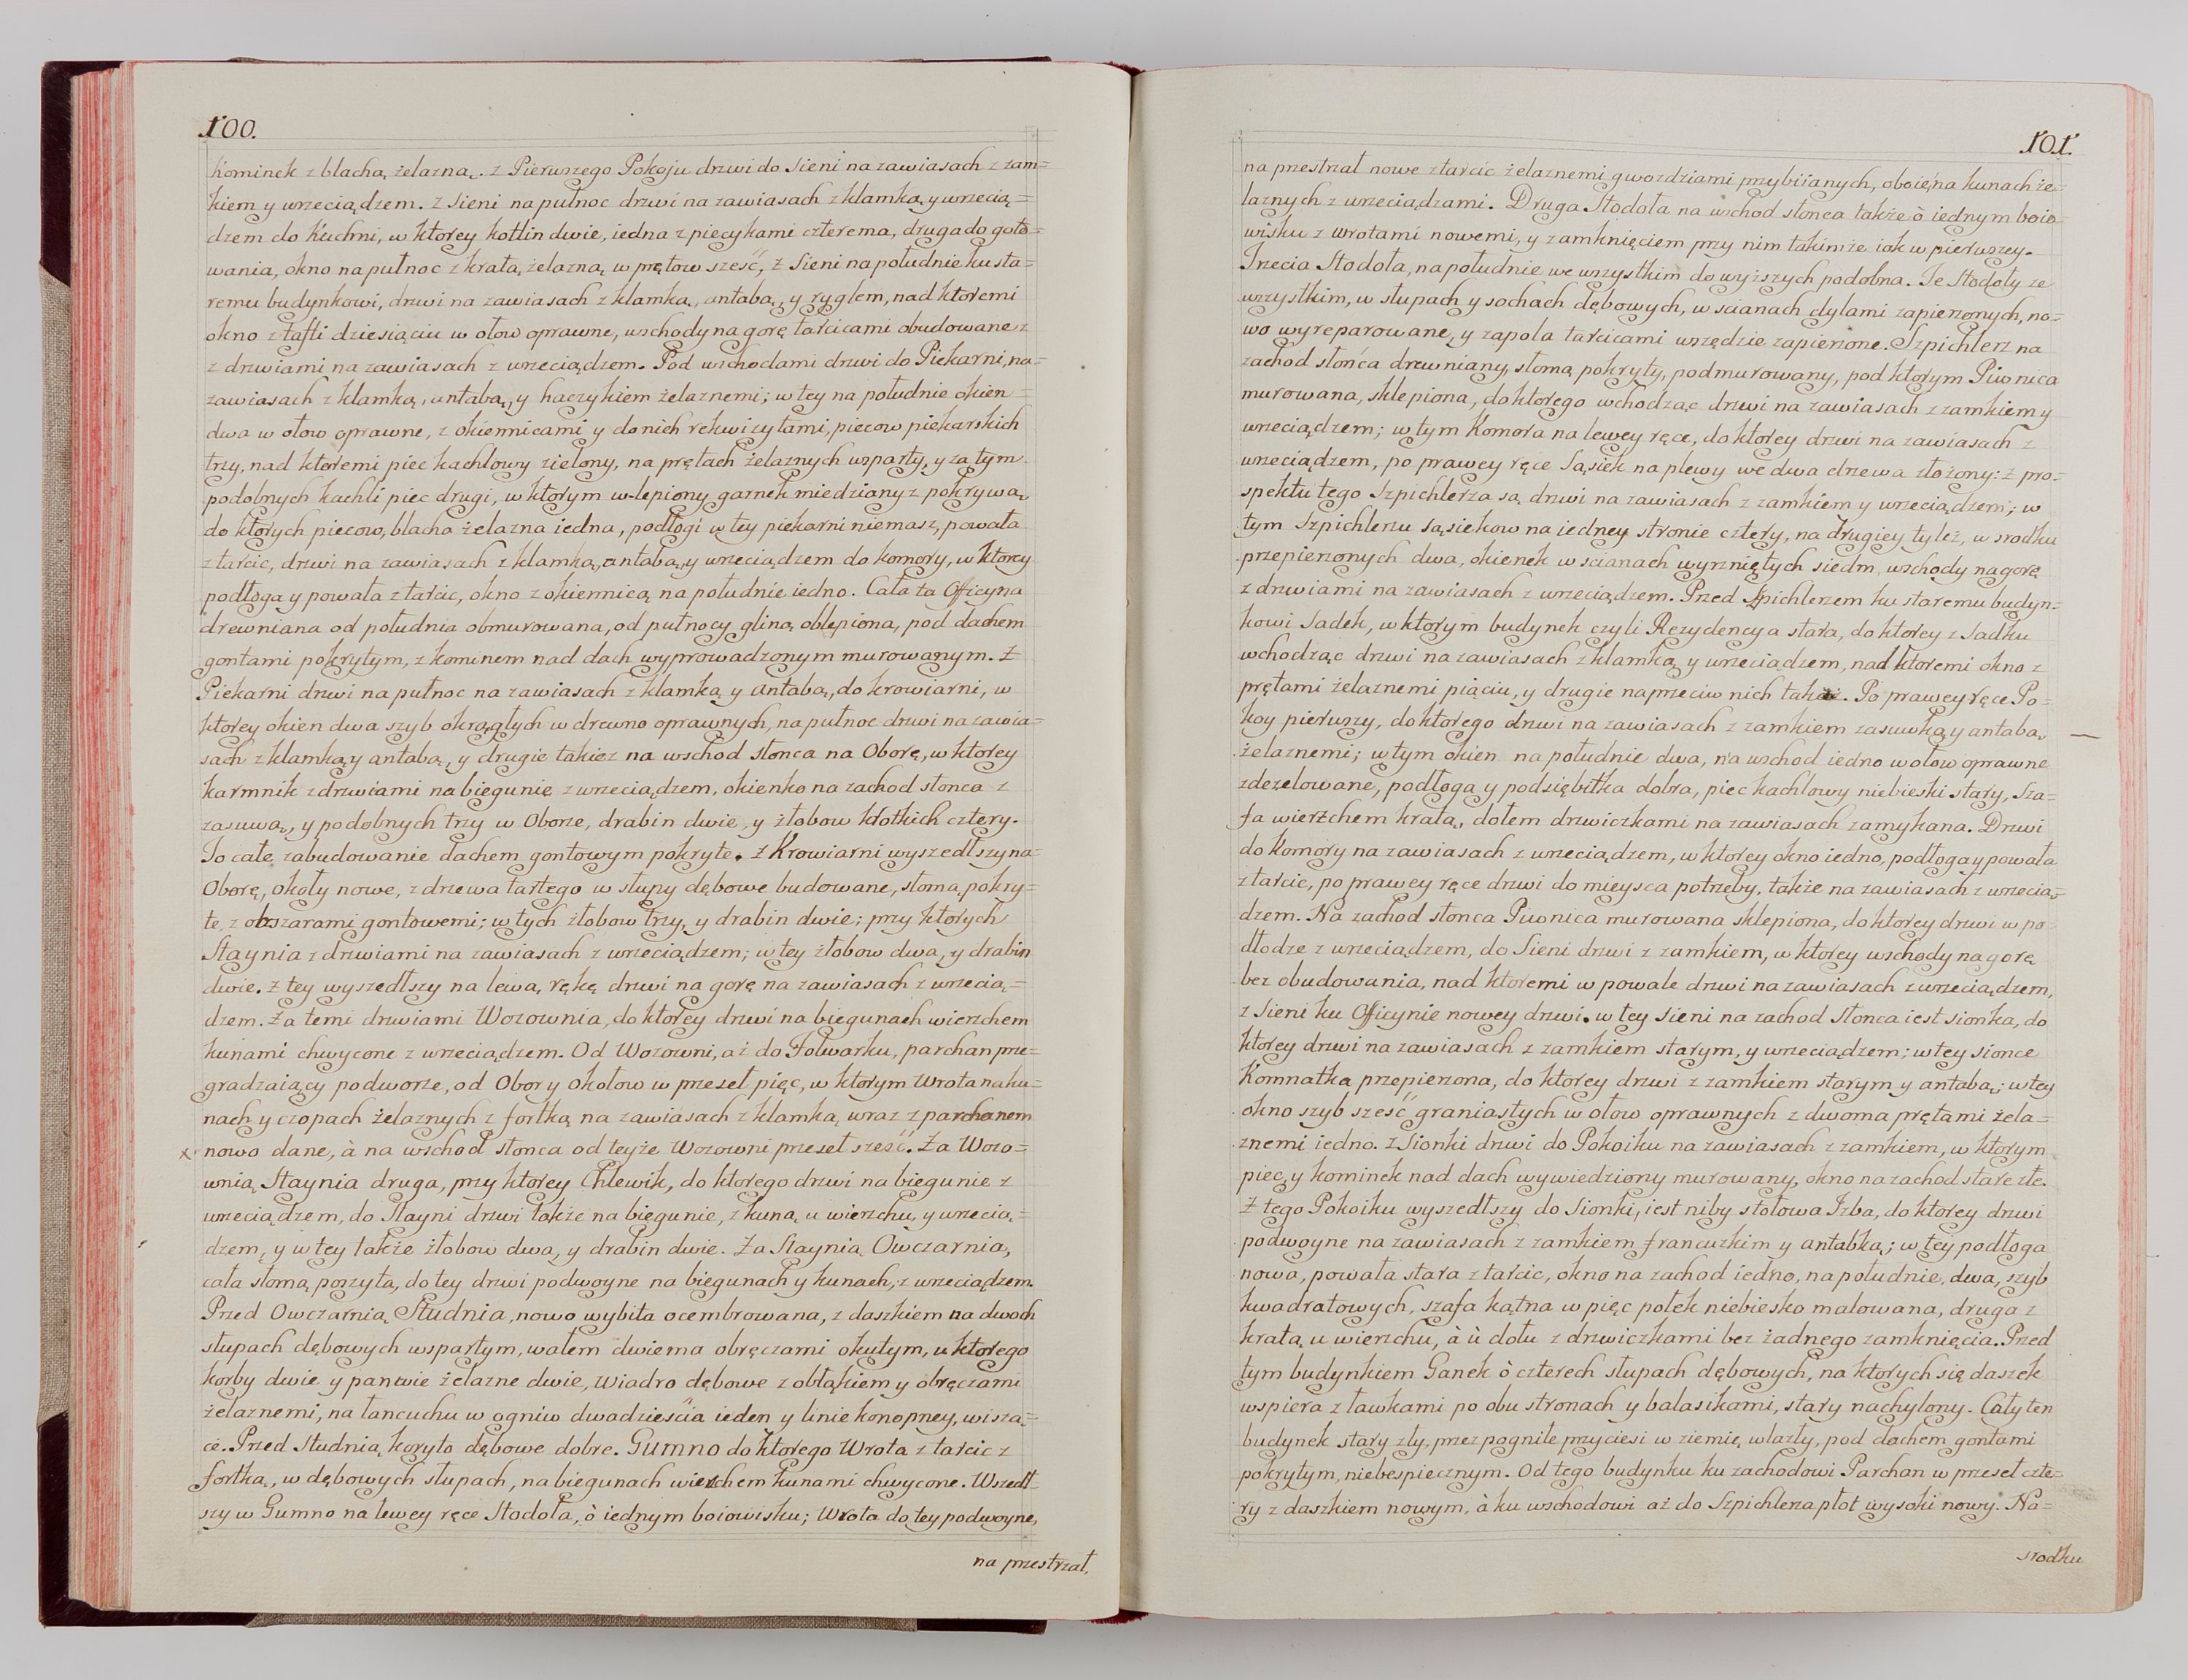 100.
Kominek z blachą żelazną. z Pierwszego Pokoju drzwi do Sieni na zawiasach z zam=
kiem y wrzeciądzem. z Sieni na pułnoc drzwi na zawiasach z klamką y wrzecią=
dzem do Kuchni, w ktorey kotlin dwie, iedna z piecykami czterema, druga do goto=
wania, okno na pułnoc z kratą żelazną w prętow sześć, z Sieni na południe ku sta=
remu budynkowi, drzwi na zawiasach z klamką, antabą, y ryglem, nad ktoremi
okno z tafli dziesiąciu w ołow oprawne, wschody na gorę tarcicami obudowane z
z drzwiami na zawiasach z wrzeciądzem. Pod wschodami drzwi do Piekarni, na=
zawiasach z klamką, antabą, y haczykiem żelaznemi; w tey na południe okien=
dwa w ołow oprawne, z okiennicami y do nich rekwizytami, piecow piekarskich
trzy, nad ktoremi piec kachlowy zielony, na prętach żelaznych wsparty, y za tym
podobnych kachli piec drugi, w ktorym w-lepiony garnek miedziany z pokrywą,
do ktorych piecow, blacha żelazna iedna, podłogi w tey piekarni niemasz, powała
z tarcic, drzwi na zawiasach z klamką, antabą, y wrzeciądzem do komory, w ktorey
podłoga y powała z tarcic, okno z okiennicą na południe iedno. Cała ta Officyna
drewniana od południa obmurowana, od pułnocy gliną oblepiona, pod dachem
gontami pokrytym, z kominem nad dach wyprowadzonym murowanym. Z
Piekarni drzwi na pułnoc na zawiasach z klamką y antabą, do krowiarni, w
ktorey okien dwa szyb okrągłych w drewno oprawnych, na pułnoc drzwi na zawia=
sach z klamką y antabą, y drugie takież na wschod słonca na Oborę, w ktorey
karmnik z drzwiami na biegunie z wrzeciądzem, okienko na zachod słonca z
zasuwą, y podobnych trzy w Oborze, drabin dwie y żłobow krotkich cztery.
To całe zabudowanie dachem gontowym pokryte. z Krowiarni wyszedłszy na=
Oborę, okoły nowe, z drzewa tartego w słupy dębowe budowane, słomą pokry=
te, z obszarami gontowemi; w tych żłobow trzy, y drabin dwie; przy ktorych
Staynia z drzwiami na zawiasach z wrzeciądzem; w tey żłobow dwa, y drabin
dwie. z tey wyszedłszy na lewą rękę drzwi na gorę na zawiasach z wrzecią=
dzem. Za temi drzwiami Wozownia, do ktorey drzwi na biegunach wierzchem
kunami chwycone z wrzeciądzem. Od Wozowni, aż do Folwarku, parchan prze=
gradzaiący podworze, od Obory okołow w przeseł pięć, w ktorym Wrota na ku=
nach y czopach żelaznych z fortką na zawiasach z klamką, wraz z parchanem
x nowo dane, à na wschod słonca od teyże Wozowni przeseł sześć. Za Wozo=
wnią Staynia druga, przy ktorey Chlewik, do ktorego drzwi na biegunie z
wrzeciądzem, do Stayni drzwi także na biegunie, z kuną u wierzchu, y wrzecią=
dzem, y w tey także żłobow dwa, y drabin dwie. Za Staynią Owczarnia,
cała słomą poszyta, do tey drzwi podwoyne na biegunach y kunach, z wrzeciądzem.
Przed Owczarnią Studnia, nowo wybita ocembrowana, z daszkiem na dwoch
słupach dębowych wspartym, wałem dwiema obręczami okutym, u ktorego
korby dwie y panwie żelazne dwie, Wiadro dębowe z obłąkiem y obręczami
żelaznemi, na łancuchu w ogniw dwadzieścia ieden y linie konopney, wiszą=
ce. Przed Studnią koryto dębowe dobre. Gumno do ktorego Wrota z tarcic z
fortką, w dębowych słupach, na biegunach wierzchem kunami chwycone. Wszedł=
szy w Gumno na lewey ręce Stodoła, ò iednym boiowisku; Wrota do tey podwoyne,
na przestrzał,
101.
na przestrzał nowe z tarcic żelaznemi gwozdziami przybiianych, oboie na kunach że=
laznych z wrzeciądzami. Druga Stodoła na wschod słonca także ò iednym boio=
wisku z wrotami nowemi, y zamknięciem przy nim takimże iak w pierwszey.
Trzecia Stodoła, na południe we wszystkim do wyższych podobna. Te Stodoły ze
wszystkim, w słupach y sochach dębowych, w scianach dylami zapierzonych, no=
wo wyreparowane, y zapola tarcicami wszędzie zapierzone. Szpichlerz na
zachod słońca drewniany, słomą pokryty, podmurowany, pod ktorym Piwnica
murowana, sklepiona, do ktorego wchodząc drzwi na zawiasach z zamkiem y
wrzeciądzem; w tym Komora na lewey ręce, do ktorey drzwi na zawiasach z
wrzeciądzem, po prawey ręce Sąsiek na plewy we dwa drzewa złożony: z pro=
spektu tego Szpichlerza są drzwi na zawiasach z zamkiem y wrzeciądzem; w
tym Szpichlerzu sąsiekow na iedney stronie cztery, na drugiey tyleż, w srodku
przepierzonych dwa, okienek w scianach wyrzniętych siedm, wschody na gorę
z drzwiami na zawiasach z wrzeciądzem. Przed Szpichlerzem ku staremu budyn=
kowi Sadek, w ktorym budynek czyli Rezydencya stara, do ktorey z Sadku
wchodząc drzwi na zawiasach z klamką y wrzeciądzem, nad ktoremi okno z
prętami żelaznemi piąciu, y drugie naprzeciw nich takież. Po prawey ręce Po=
koy pierwszy, do ktorego drzwi na zawiasach z zamkiem zasuwką y antabą,
żelaznemi; w tym okien na południe dwa, na wschod iedno w ołow oprawne
zdezelowane, podłoga y podsiębitka dobra, piec kachlowy niebieski stary, Sza=
fa wierzchem kratą, dołem drzwiczkami na zawiasach zamykana. Drzwi
do Komory na zawiasach z wrzeciądzem, w ktorey okno iedno, podłoga y powała
z tarcic, po prawey ręce drzwi do mieysca potrzeby, także na zawiasach z wrzecią=
dzem. Na zachod słonca Piwnica murowana sklepiona, do ktorey drzwi w po=
dłodze z wrzeciądzem, do Sieni drzwi z zamkiem, w ktorey wschody na gorę
bez obudowania, nad ktoremi w powale drzwi na zawiasach z wrzeciądzem,
z Sieni ku Officynie nowey drzwi. w tey Sieni na zachod słonca iest sionka, do
ktorey drzwi na zawiasach z zamkiem starym, y wrzeciądzem; w tey sionce
Komnatka przepierzona, do ktorey drzwi z zamkiem starym y antabą; w tey
okno szyb sześć graniastych w ołow oprawnych z dwoma prętami żela=
znemi iedno. z Sionki drzwi do Pokoiku na zawiasach z zamkiem, w ktorym
piec, y kominek nad dach wywiedziony murowany, okno na zachod stare złe.
Z tego Pokoiku wyszedłszy do Sionki, iest niby stołowa Izba, do ktorey drzwi
podwoyne na zawiasach z zamkiem francuzkim y antabką; w tey podłoga
nowa, powała stara z tarcic, okno na zachod iedno, na południe, dwa, szyb
kwadratowych, szafa kątna w pięc połek niebiesko malowana, druga z
kratą u wierzchu, à ù dołu z drzwiczkami bez żadnego zamknięcia. Przed
tym budynkiem Ganek ò czterech słupach dębowych, na ktorych się daszek
wspiera z ławkami po obu stronach y balasikami, stary nachylony. Cały ten
budynek stary zły, przez pogniłe przyciesi w ziemię wlazły, pod dachem gontami
pokrytym, niebespiecznym. Od tego budynku ku zachodowi Parchan w przeseł czte=
ry z daszkiem nowym, à ku wschodowi aż do Szpichlerza płot wysoki nowy. Na=
srodku